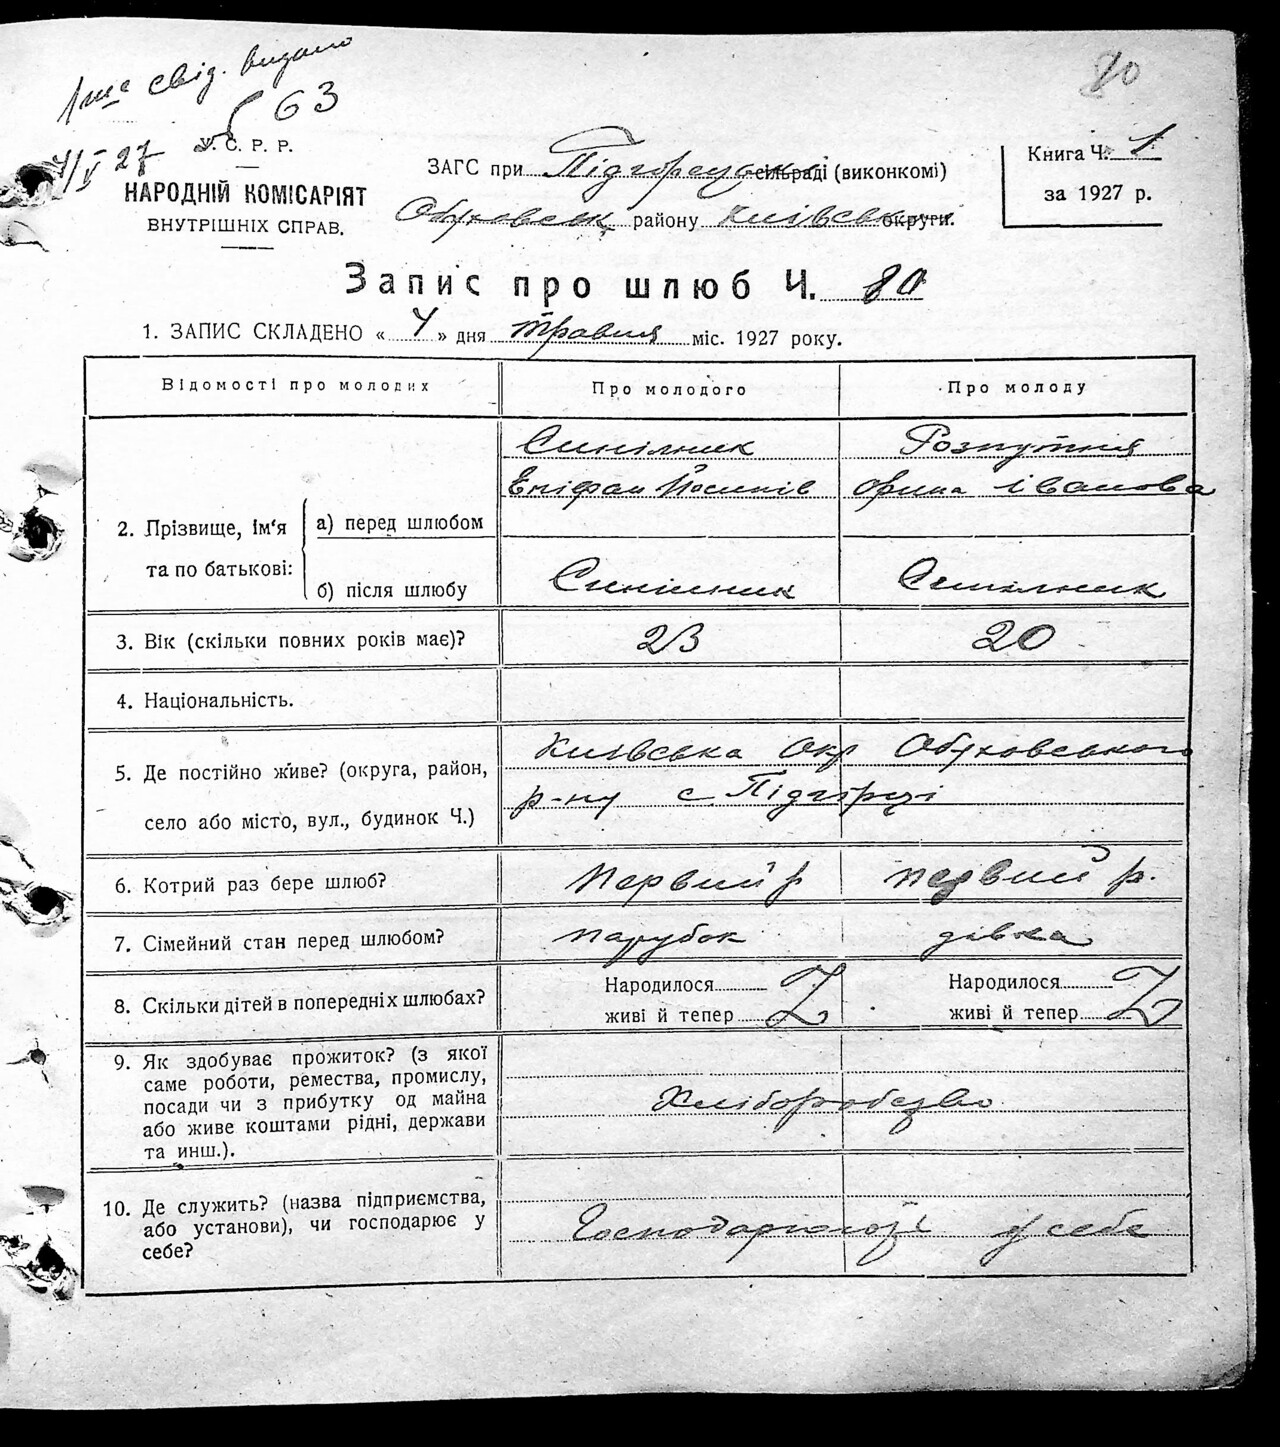 свід. видано
63
80
4/V 27
У. С. Р. Р.
НАРОДНІЙ КОМІСАРІЯТ
ВНУТРІШНІХ СПРАВ.
ЗАГС при Підгорецькі сільраді (виконкомі)
Обуховськ району Київськ округи.
Книга Ч. 1
за 1927 р.
Запис про шлюб Ч. 80
1. ЗАПИС СКЛАДЕНО « 4 » дня травня міс. 1927 року.
Відомості про молодих
Про молодого
Про молоду
2. Прізвище, ім'я та по батькові:
а) перед шлюбом
Синільник
Епіфан Йосипів
Розпутня
Орина Іванова
б) після шлюбу
Синільник
Синільник
3. Вік (скільки повних років має)?
23
20
4. Національність.
5. Де постійно живе? (округа, район,
село або місто, вул., будинок Ч.)
Київська Окр Обуховського
р-ну с Підгірці
6. Котрий раз бере шлюб?
Первий р
первий р.
7. Сімейний стан перед шлюбом?
парубок
дівка
8. Скільки дітей в попередніх шлюбах?
Народилося
живі й тепер
Народилося
живі й тепер
9. Як здобуває прожиток? (з якої
саме роботи, ремества, промислу,
посади чи з прибутку од майна
або живе коштами рідні, держави
та инш.).
Хліборобство
10. Де служить? (назва підприємства,
або установи), чи господарює у
себе?
у себе